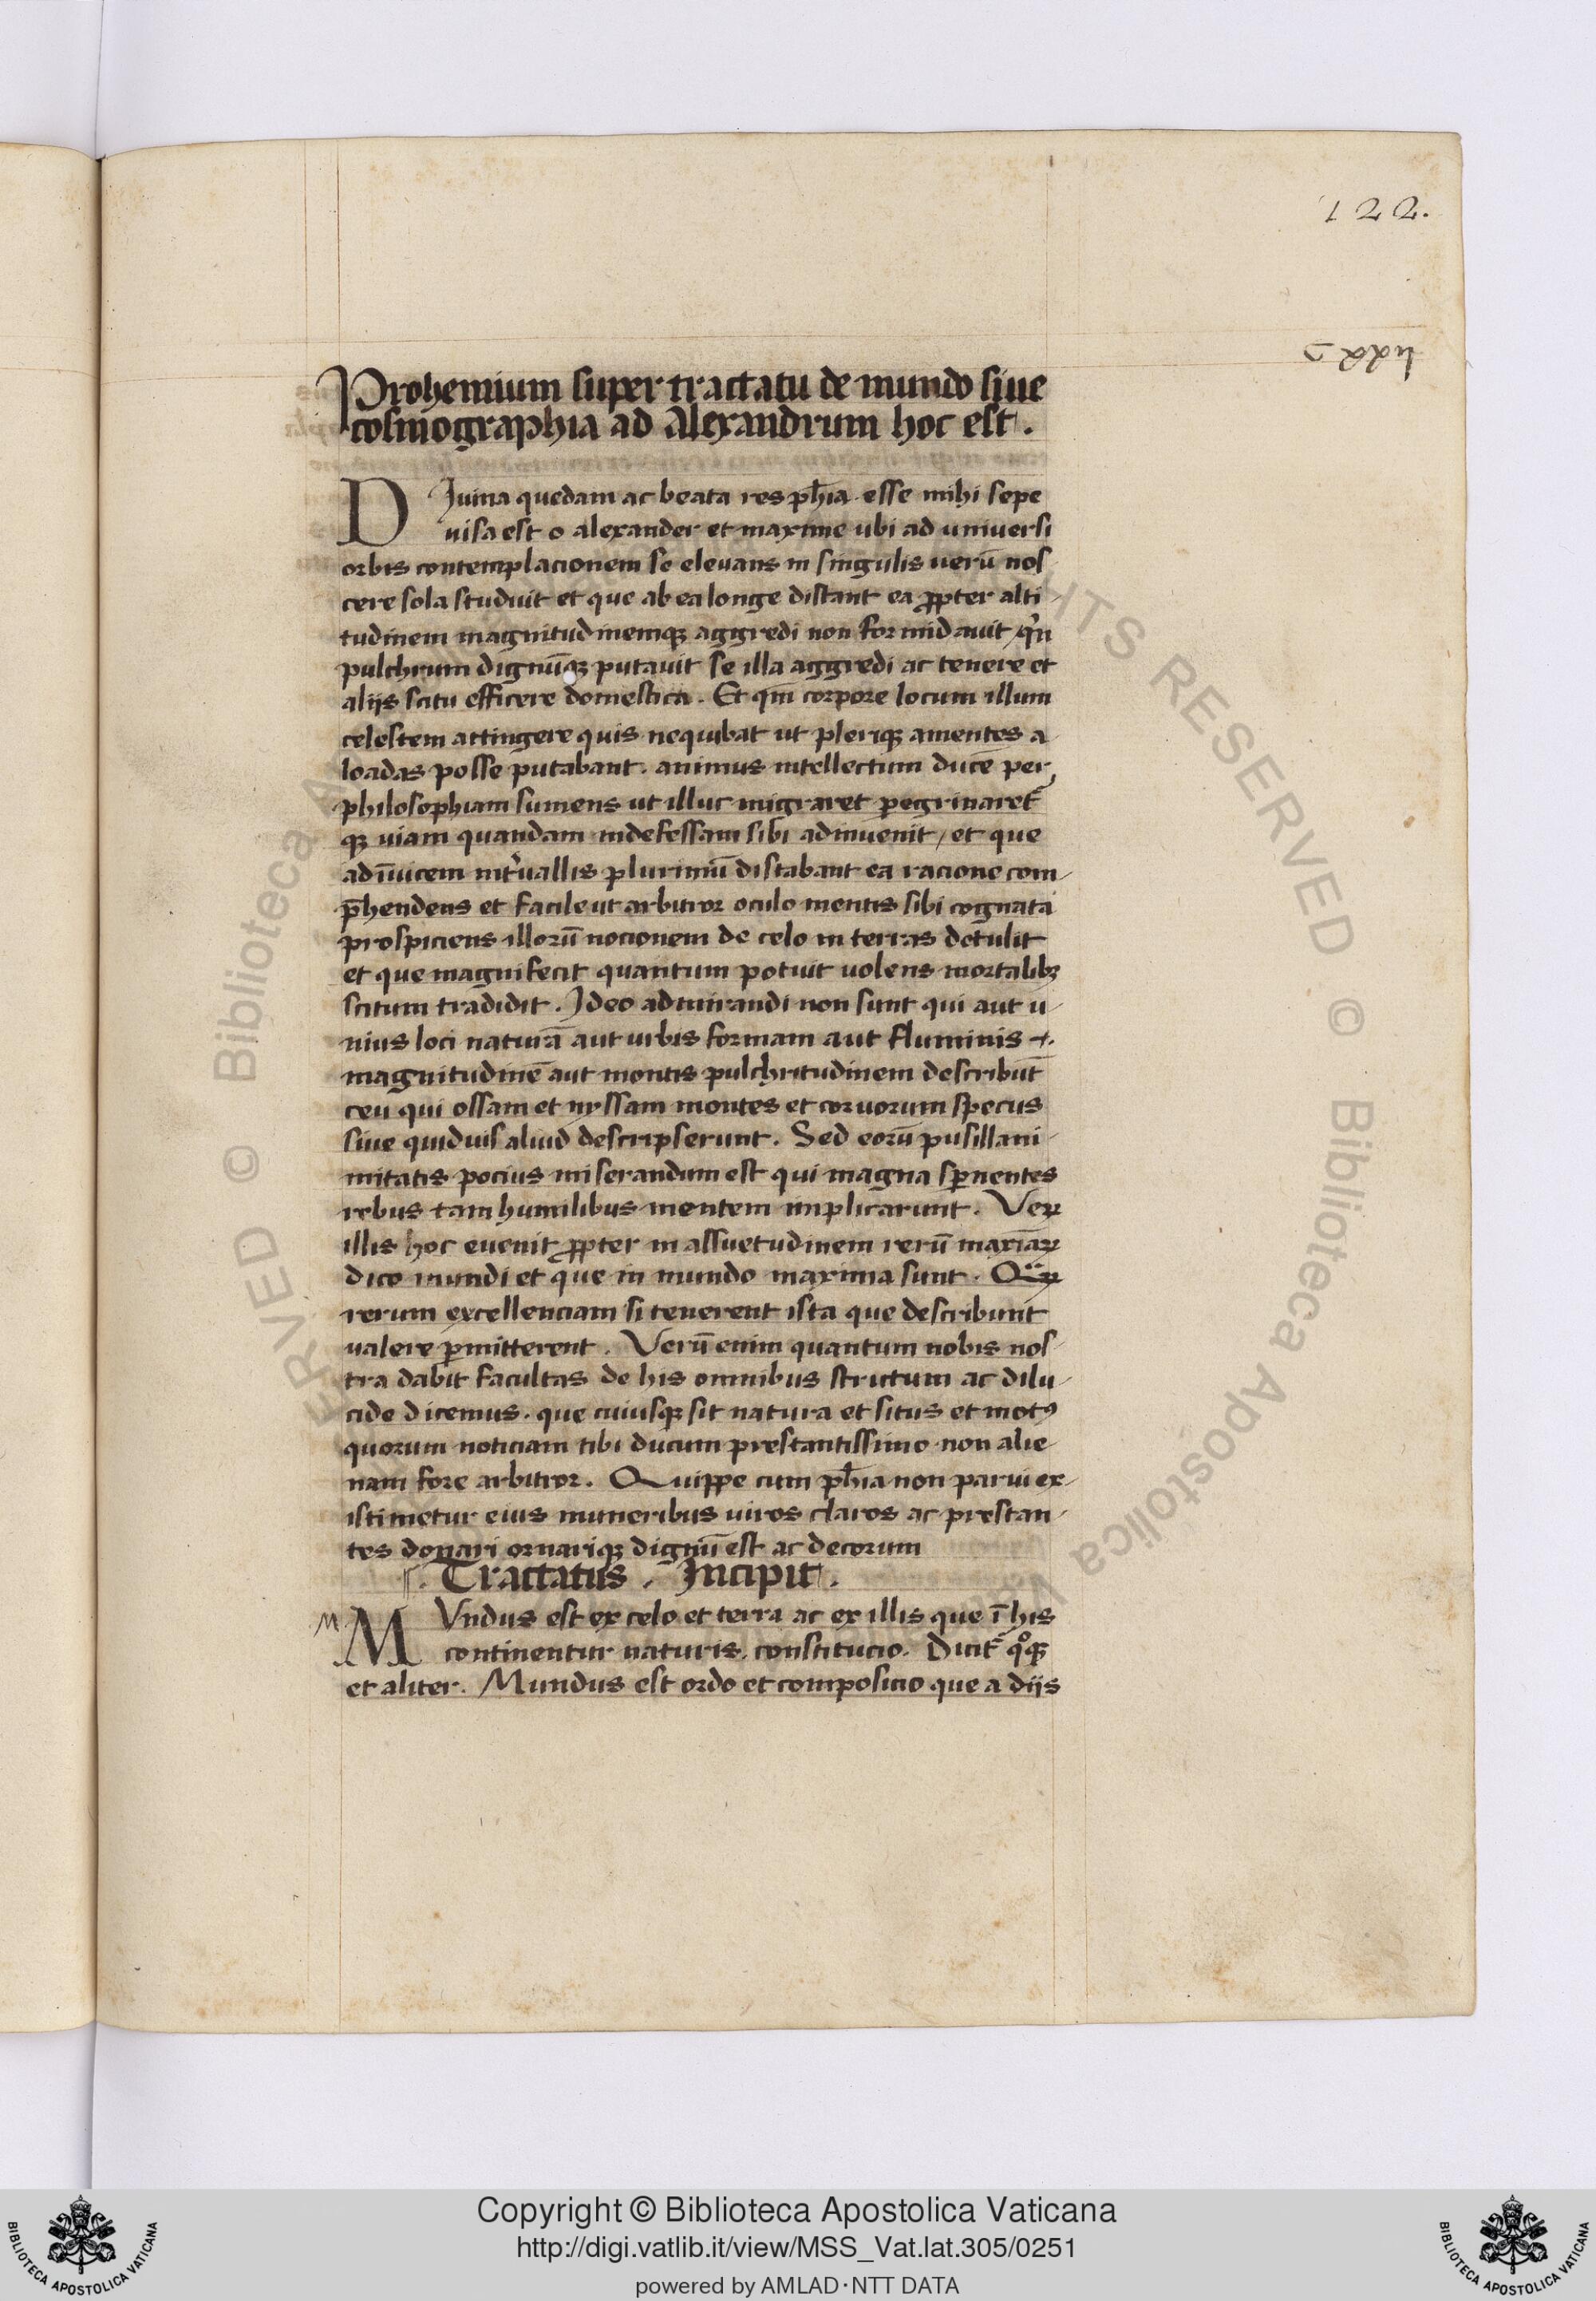 122.
Prohemium super tractatu de mundo siue
cosmographia ad Alexandrum hoc est.
DJuina quedam ac beata res ph̄ia esse mihi sepe
uisa est o alexander et maxime ubi ad uniuersi
orbis contemplacionem se eleuans in singulis uerū nos
cere sola studuit et que ab ea longe distant ea ꝓpter alti-
tudinem magnitudinemqꝫ aggredi non formidauit qͥn
pulchrum dignūqꝫ putauit se illa aggredi ac tenere et
aliis scitu efficere domestica. Et qm̄ corpore locum illum
celestem attingere quis nequibat ut pleriqꝫ amentes a-
loadas posse putabant. animus intellectum ducē per
philosophiam sumens ut illuc migraret ꝑegrinaret᷑
qꝫ uiam quandam indefessam sibi adinuenit / et que
adīuicem int͛uallis plurimū distabant ea racione com-
p̄hendens et facile ut arbitror oculo mentis sibi cognata
prospiciens illorū nocionem de celo in terras detulit
et que magnifecit quantum potuit uolens mortalibꝫ
scitum tradidit. Ideo admirandi non sunt qui aut u-
nius loci naturā aut urbis formam aut fluminis
magnitudinē aut montis pulchritudinem describūt
ceu qui ossam et nyssam montes et coruorum specus
siue quiduis aliud descripserunt. Sed eorū pusillani-
mitatis pocius miserandum est qui magna sꝑnentes
rebus tam humilibus mentem implicarunt. Veꝝ
illis hoc euenit ꝓpter in assuetudinem rerū maxīaꝝ
dico mundi et que in mundo maxima sunt. Quaꝝ
rerum excellenciam si tenerent ista que describunt
ualere ꝑmitterent. Verū enim quantum nobis nos-
tra dabit facultas de his omnibus strictum ac dilu-
cide dicemus. que cuiusqꝫ sit natura et situs et motꝰ
quorum noticiam tibi ducum prestantissimo non alie-
nam fore arbitror. Quippe cum ph̄ia non parui ex-
istimetur eius muneribus uiros claros ac prestan-
tes donari ornariqꝫ dignū est ac decorum
Tractatus. Incipit.
m MVndus est ex celo et terra ac ex illis que ī his
continentur naturis, constitucio. Dicit᷑ qͦqꝫ
et aliter. Mundus est ordo et composicio que a diis
Copyright © Biblioteca Apostolica Vaticana
http://digi.vatlib.it/view/MSS_Vat.lat.305/0251
powered by AMLAD·NTT DATA
BIBLIOTECA APOSTOLICA VATICANA
BIBLIOTECA APOSTOLICA VATICANA